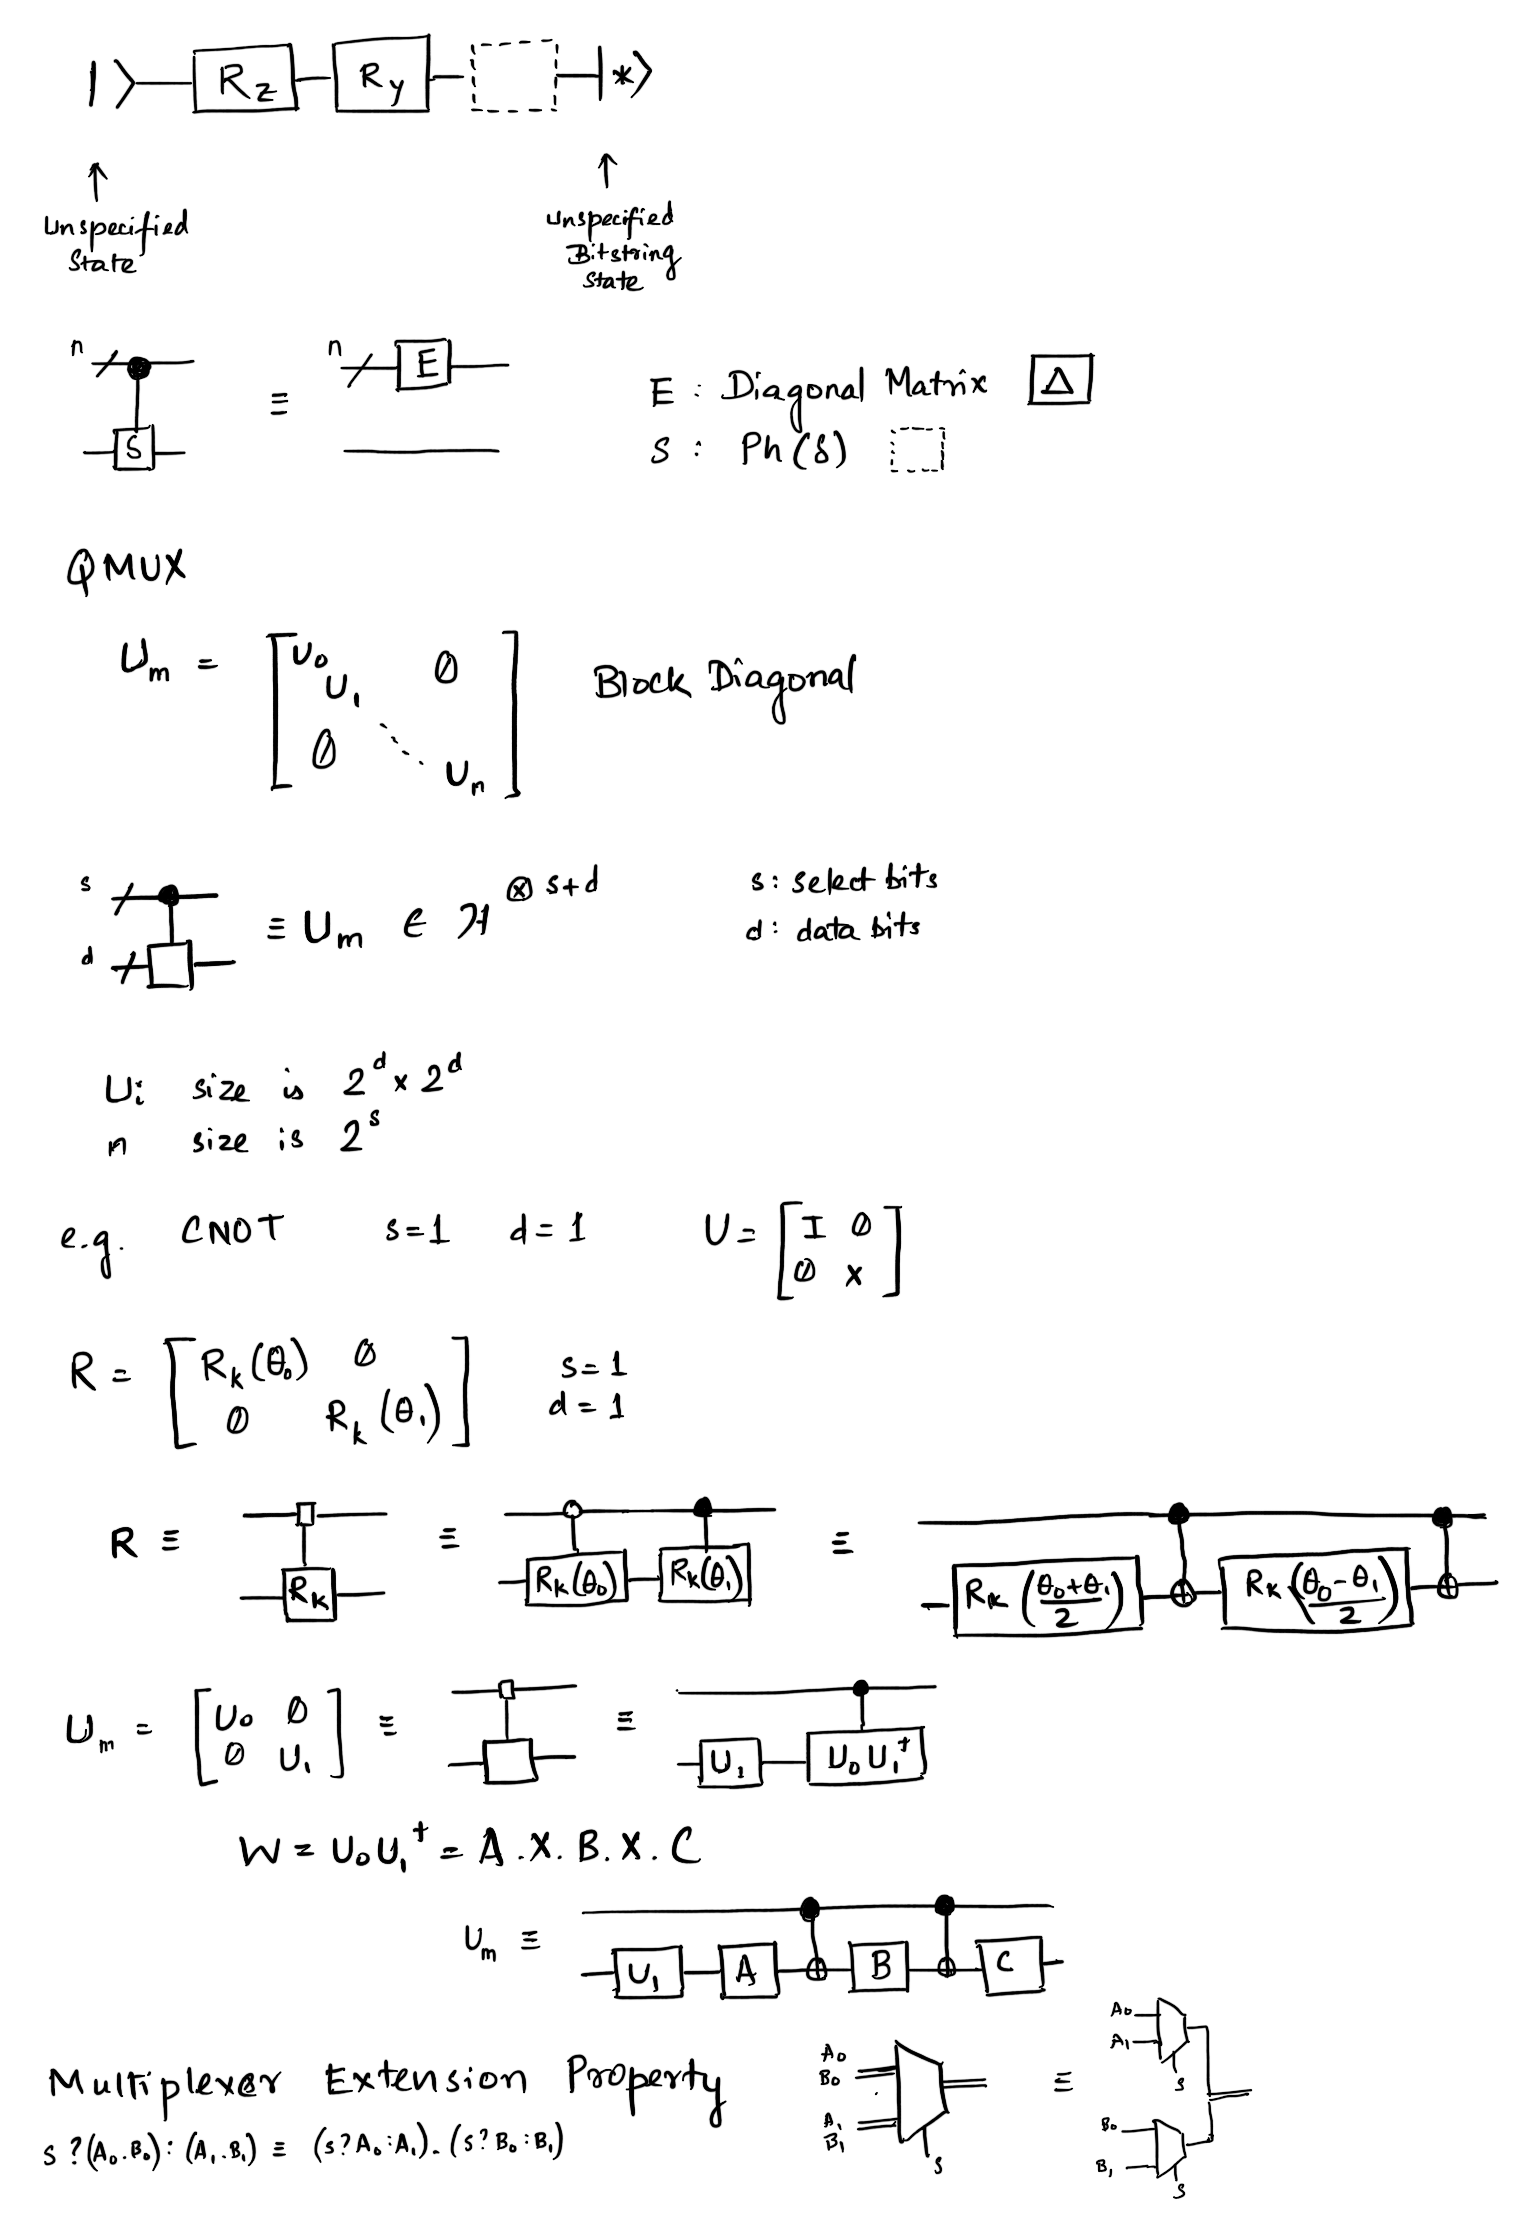 | ⟩ R_z R_y |*⟩
↑ ↑
Unspecified State
Unspecified Bitstring State
n S ≡ n E
E : Diagonal Matrix Δ
S : Ph(δ)
QMUX
U_m = [U_0 U_1 0 0 ⋱ U_n] Block Diagonal
s d ≡ U_m ∈ ℋ^⊗ s+d
s: select bits
d: data bits
U_i size is 2^d × 2^d
n size is 2^s
e.g. CNOT s=1 d=1 U = [I 0 0 X]
R = [R_k(θ_0) 0 0 R_k(θ_1)] s=1 d=1
R ≡ R_k ≡ R_k(θ_0) R_k(θ_1) ≡ R_k((θ_0+θ_1)/2) R_k((θ_0-θ_1)/2)
U_m = [U_0 0 0 U_1] ≡ ≡ U_1 U_0U_1^†
W = U_0U_1^† = A.X.B.X.C
U_m ≡ U_1 A B C
Multiplexer Extension Property
s?(A_0.B_0):(A_1.B_1) ≡ (s?A_0:A_1).(s?B_0:B_1)
A_0 B_0 A_1 B_1 s ≡ A_0 A_1 s B_0 B_1 s